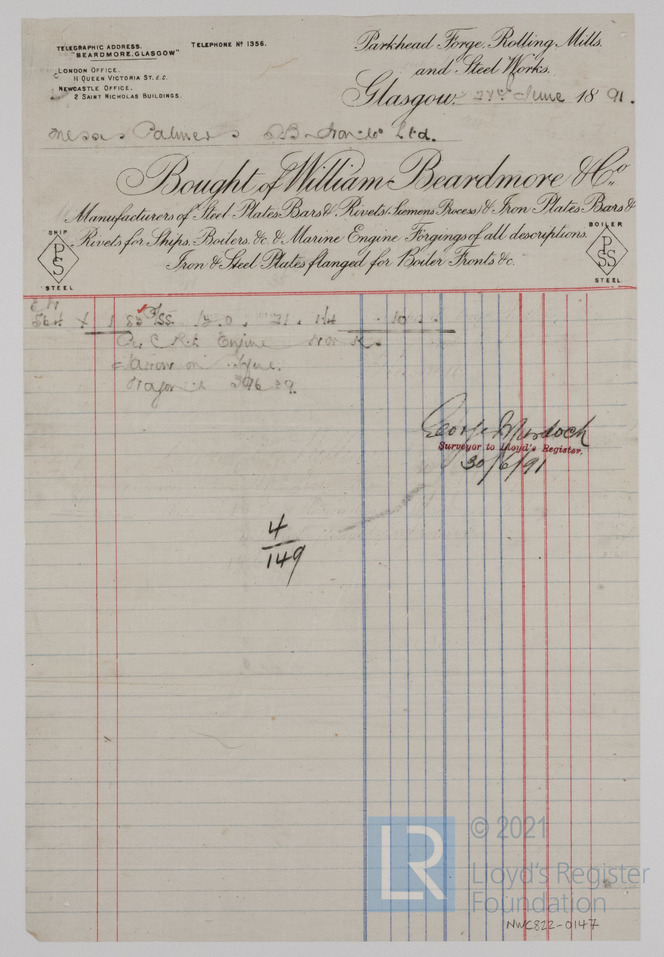 TELEGRAPHIC ADDRESS.
"BEARDMORE, GLASGOW"
TELEPHONE Nº 1356.
LONDON OFFICE.
11 QUEEN VICTORIA ST. E.C.
NEWCASTLE OFFICE.
2 SAINT NICHOLAS BUILDINGS.
Parkhead Forge, Rolling Mills,
and Steel Works.
Glasgow, June 1891.
Palmer's Ltd.
Bought of William Beardmore & Co.
Manufacturers of Steel Plates Bars & Rivets (Siemens Process) & Iron Plates Bars &
Rivets for Ships, Boilers, &c. & Marine Engine Forgings of all descriptions.
Iron & Steel Plates flanged for Boiler Fronts &c.
SHIP
PSS
STEEL
BOILER
PSS
STEEL
10
Engine
Jarrow on Tyne.
George Murdoch
Surveyor to Lloyd's Register.
30/6/91
4
149
LR
© 2021
Lloyd's Register
Foundation
NWC822-0147